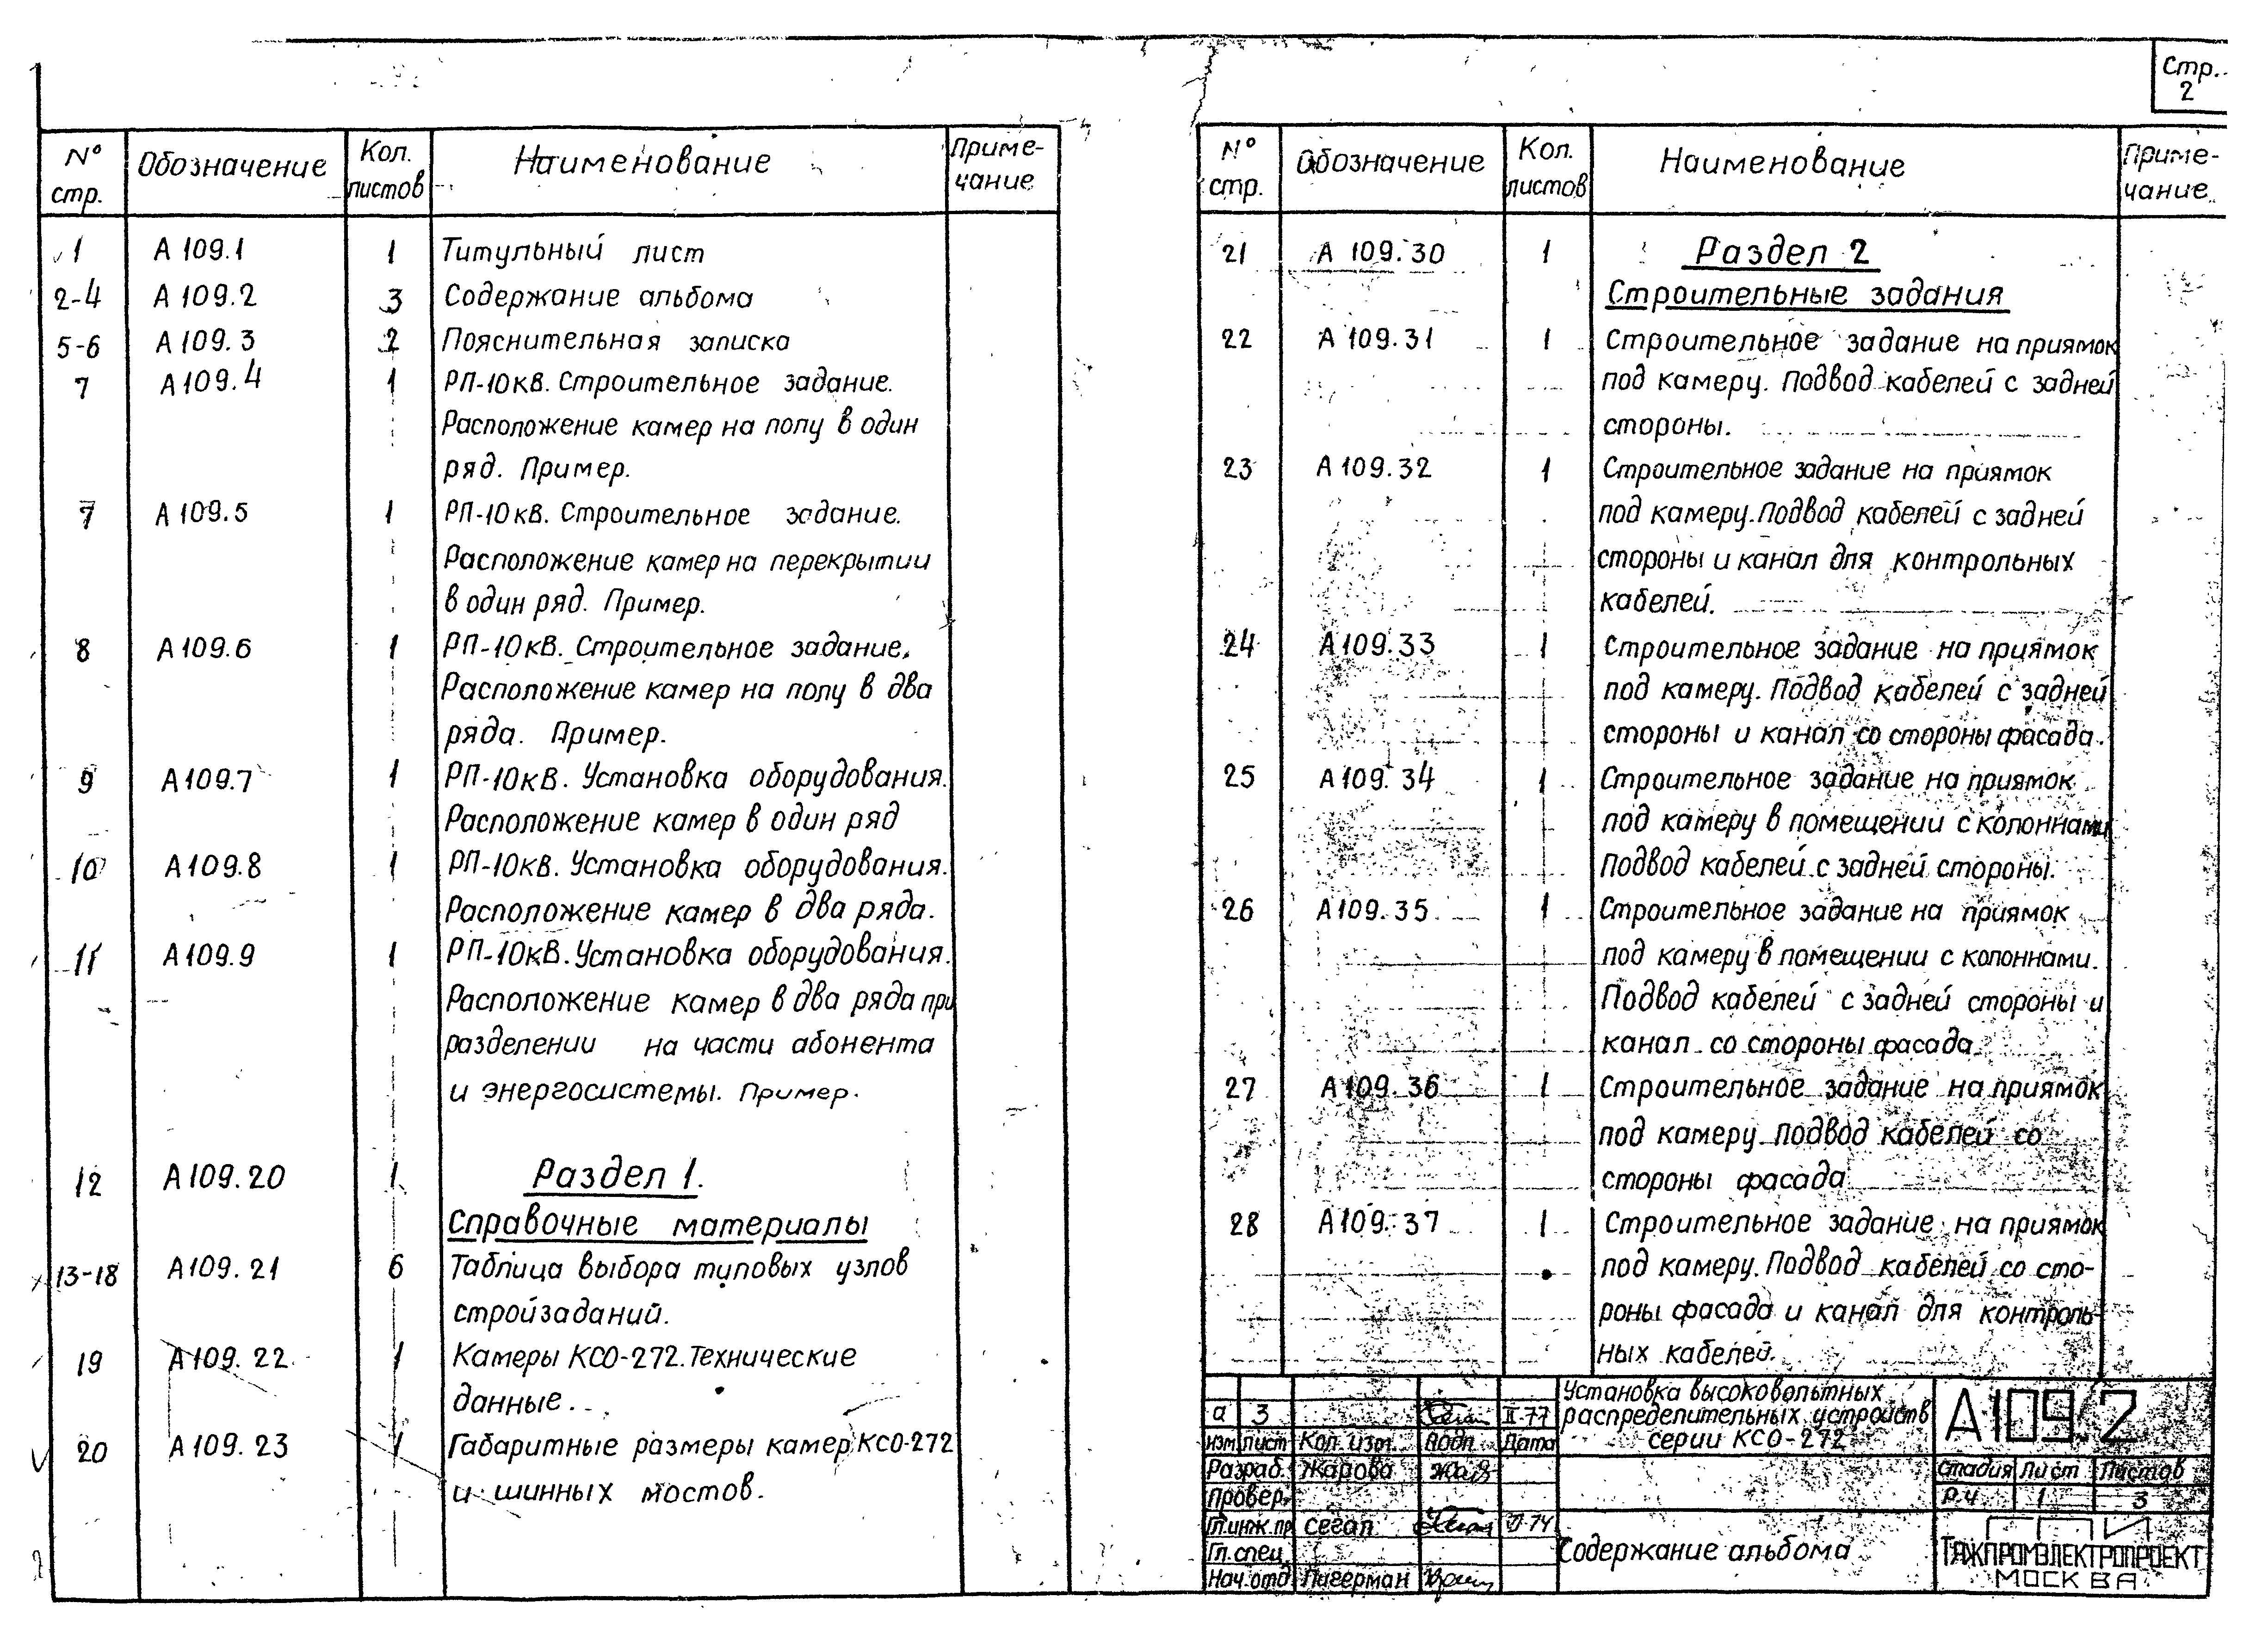 Стр.
2
№ стр. Обозначение Кол. листов Наименование Приме-чание
1 А 109.1 1 Титульный лист
2-4 А 109.2 3 Содержание альбома
5-6 А 109.3 2 Пояснительная записка
7 А 109.4 1 РП-10кВ. Строительное задание.
Расположение камер на полу в один
ряд. Пример.
7 А 109.5 1 РП-10кВ. Строительное задание.
Расположение камер на перекрытии
в один ряд. Пример.
8 А 109.6 1 РП-10кВ. Строительное задание.
Расположение камер на полу в два
ряда. Пример.
9 А 109.7 1 РП-10кВ. Установка оборудования.
Расположение камер в один ряд
10 А 109.8 1 РП-10кВ. Установка оборудования.
Расположение камер в два ряда.
11 А 109.9 1 РП-10кВ. Установка оборудования.
Расположение камер в два ряда при
разделении на части абонента
и энергосистемы. Пример.
12 А 109.20 1 Раздел 1.
Справочные материалы
13-18 А 109.21 6 Таблица выбора типовых узлов
стройзаданий.
19 А 109.22 1 Камеры КСО-272. Технические
данные.
20 А 109.23 1 Габаритные размеры камер КСО-272
и шинных мостов.
№ стр. Обозначение Кол. листов Наименование Приме-чание
21 А 109.30 1 Раздел 2
Строительные задания
22 А 109.31 1 Строительное задание на приямок
под камеру. Подвод кабелей с задней
стороны.
23 А 109.32 1 Строительное задание на приямок
под камеру. Подвод кабелей с задней
стороны и канал для контрольных
кабелей.
24 А 109.33 1 Строительное задание на приямок
под камеру. Подвод кабелей с задней
стороны и канал со стороны фасада.
25 А 109.34 1 Строительное задание на приямок
под камеру в помещении с колоннами
Подвод кабелей с задней стороны.
26 А 109.35 1 Строительное задание на приямок
под камеру в помещении с колоннами.
Подвод кабелей с задней стороны и
канал со стороны фасада.
27 А 109.36 1 Строительное задание на приямок
под камеру. Подвод кабелей со
стороны фасада
28 А 109.37 1 Строительное задание на приямок
под камеру. Подвод кабелей со сто-
роны фасада и канал для контроль-
ных кабелей.
а 3 II-77
Изм. Лист Кол. изм. Подп. Дата
Разраб. Жарова
Провер.
Гл.инж.пр Сегал
Гл.спец.
Нач.отд Лигерман
Установка высоковольтных
распределительных устройств
серии КСО-272
Содержание альбома
А109.2
Стадия Лист Листов
Р.Ч 1 3
ТЯЖПРОМЭЛЕКТРОПРОЕКТ
МОСКВА